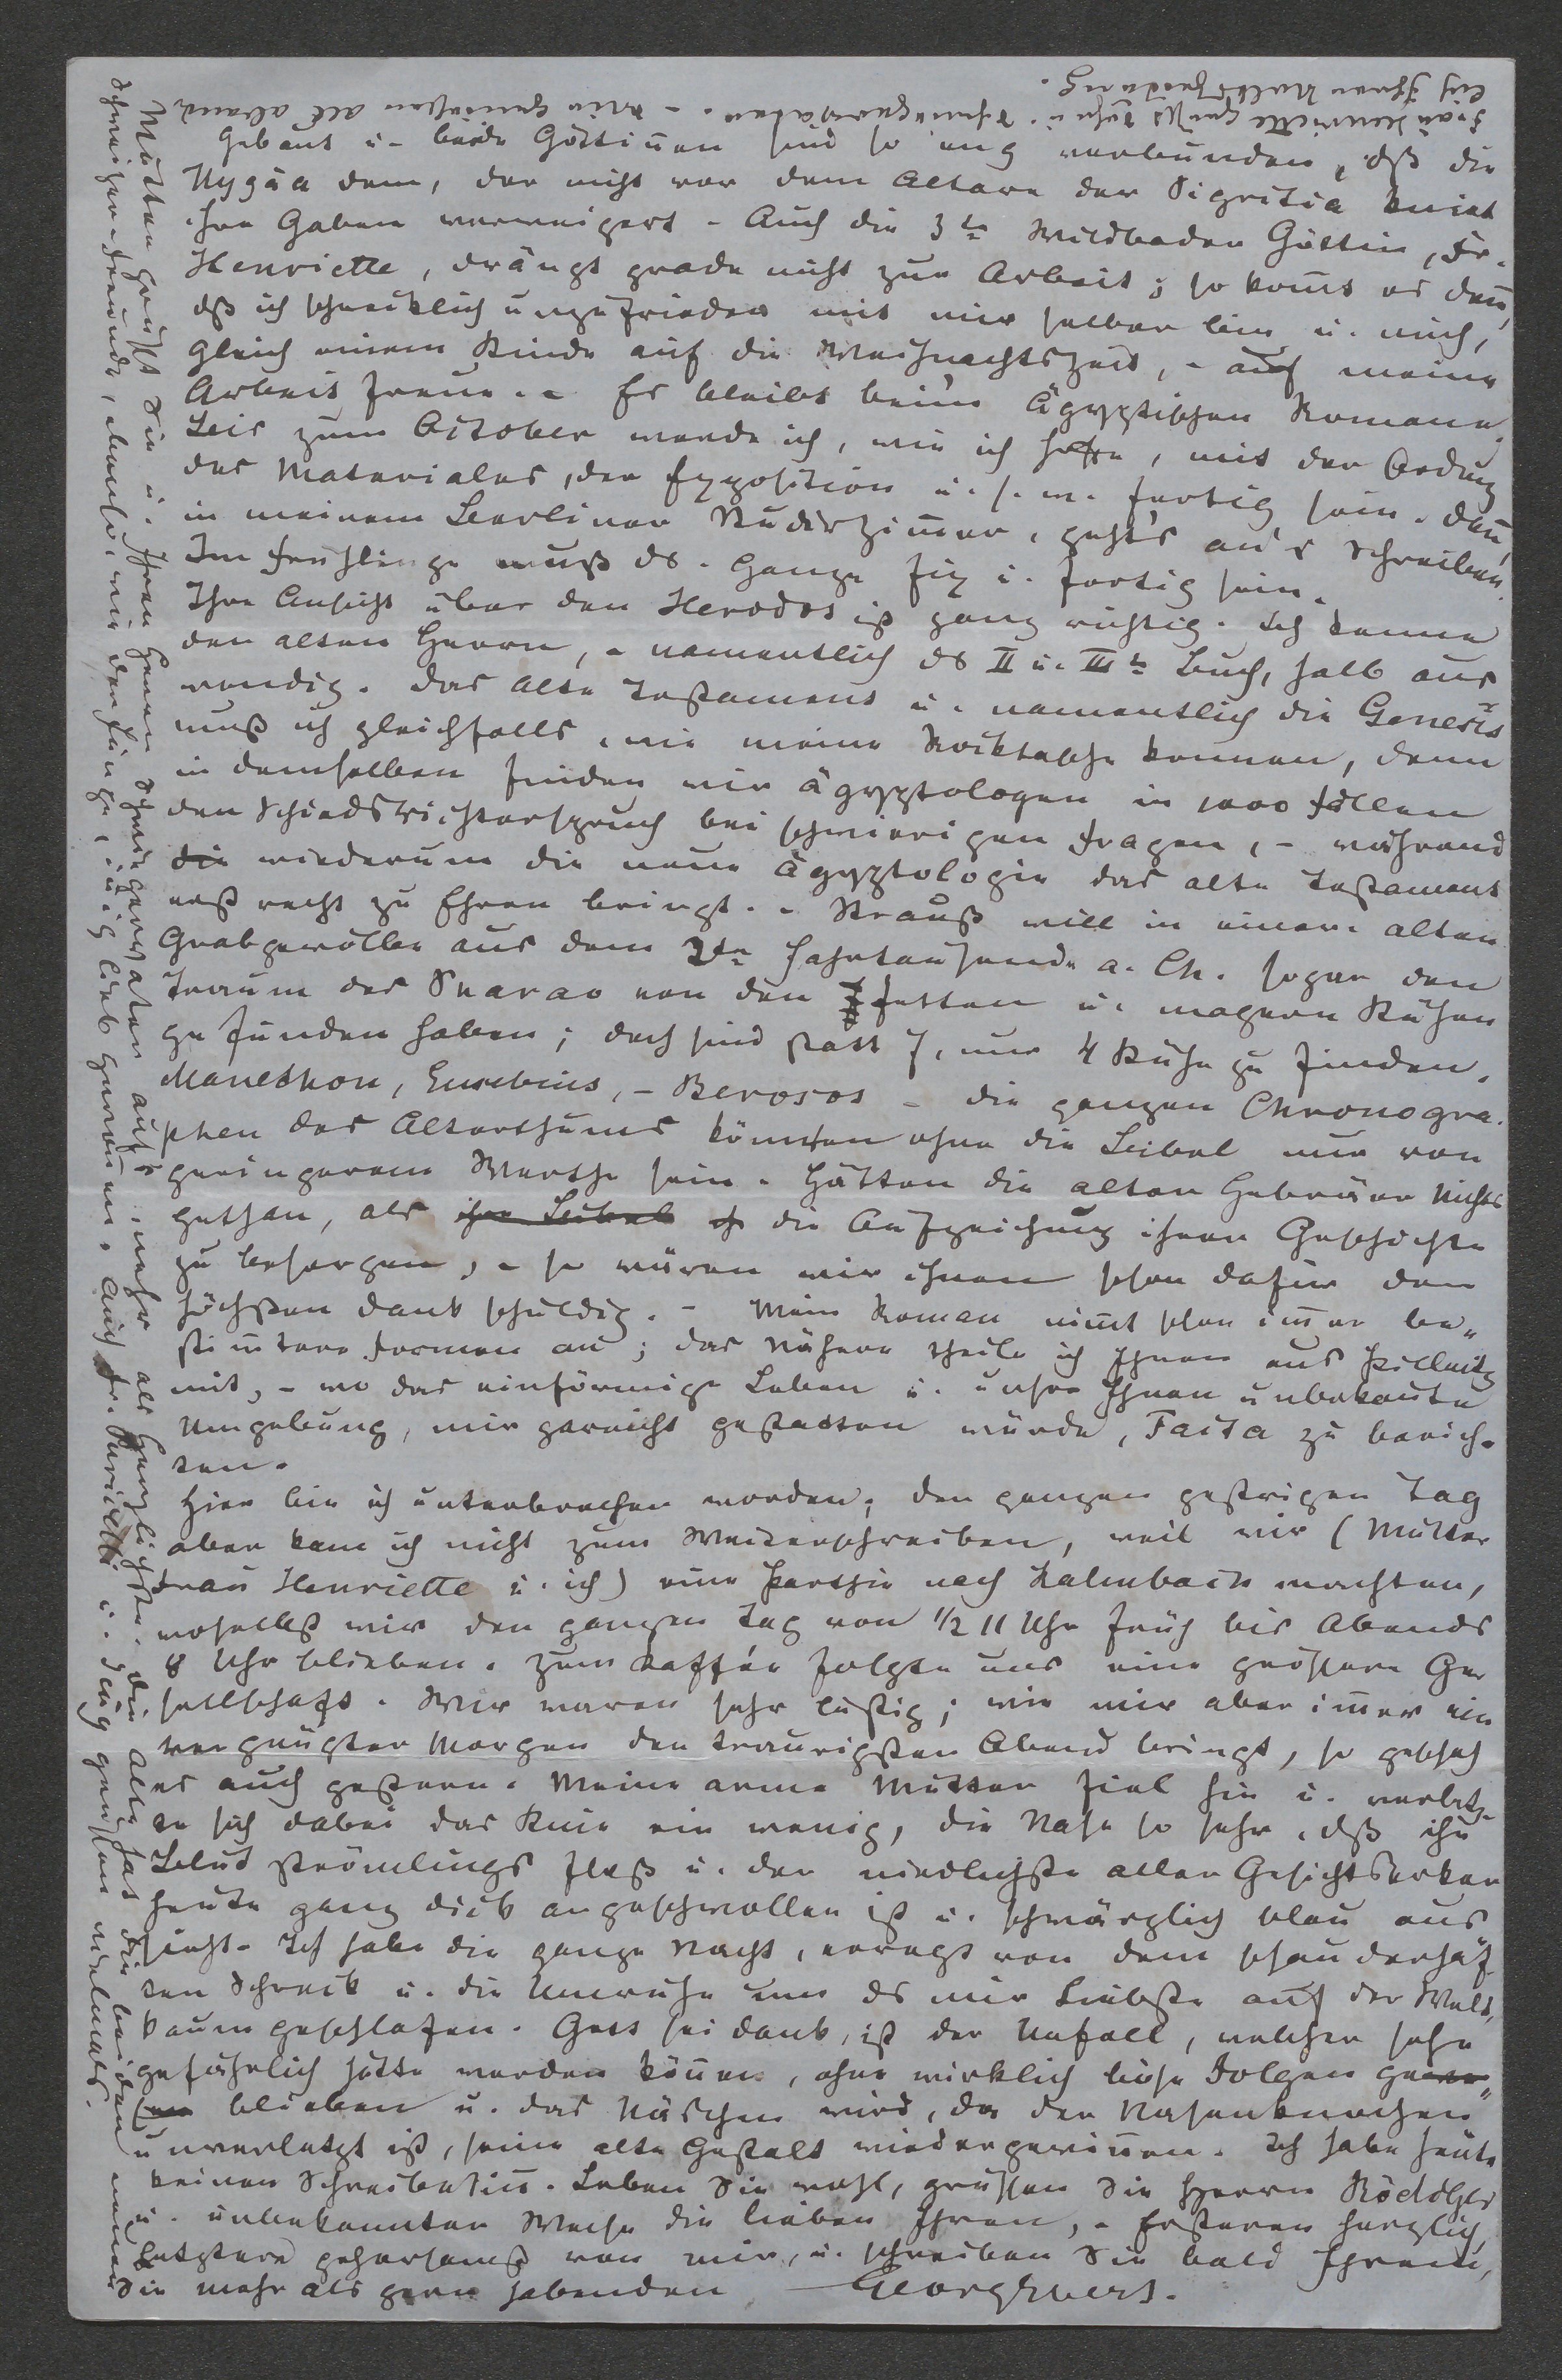 gebaut u. beide Göttinnen sind so eng verbunden, dß die
Hygäa dem, der nicht vor dem Altare der Pigritia kniet
ihre Gaben verweigert. Auch die 3te Wildbader Göttin, Fr.
Henriette, drängt grade nicht zur Arbeit; so kom̄t es den̄,
dß ich schrecklich unzufrieden mit mir selber bin u. mich,
gleich einem Kinde auf die Weihnachtszeit, – auf meine
Arbeit freue. – Es bleibt beim Ägyptischen Romane.
Bis zum October werde ich, wie ich hoffe, mit der Ordnung
des Materiales, der Exposition u. s. w. fertig sein. Dan̄,
in meinem Berliner Studirzim̄er, geht's an's Schreiben.
Im Frühlinge muß ds. Ganze fix u. fertig sein.
Ihre Ansicht über den Herodot ist ganz richtig. Ich kenne
den alten Herrn, – namentlich ds II u. IIIte Buch, halb aus
wendig. Das Alte Testament u. namentlich die Genesis
muß ich gleichfalls, wie meine Rocktasche kennen, denn
in demselben finden wir Ägyptologen in 1000 Fällen
den Schiedsrichterspruch bei schwierigen Fragen, – während
die wiederum die neue Ägyptologie das alte Testament
erst recht zu Ehren bringt. – Strauß will in einem alten
Grabgewölbe aus dem 3ten Jahrtausende a. Ch. sogar den
Traum des Pharao von den 7 fetten u. magern Kühen
gefunden haben; doch sind statt 7, nur 4 Kühe zu finden.
Manethon, Eusebius, – Berosos – die ganzen Chronogra-
phen des Alterthums könnten ohne die Bibel nur von
geringerem Werthe sein. Hätten die alten Hebräer Nichts
gethan, als ihre Bibel die Aufzeichnung ihrer Geschichte
zu besorgen, – so wären wir ihnen schon dafür den
höchsten Dank schuldig. – Mein Roman nim̄t schon im̄er be„
stim̄tere Formen an; das Nähere theile ich Ihnen aus Pillnitz
mit, – wo das einförmige Leben u. unsre Ihnen unbekan̄te
Umgebung, mir gar nicht gestatten würde, Facta zu berich-
ten.
Hier bin ich unterbrochen worden; den ganzen gestrigen Tag
aber kam ich nicht zum Weiterschreiben, weil wir (Mutter
Frau Henriette u. ich) eine Parthie nach Kalmbach machten,
woselbst wir den ganzen Tag von ½ 11 Uhr früh bis Abends
8 Uhr blieben. Zum Kaffée folgte uns eine größere Ge
sellschaft. Wir waren sehr lustig; wie mir aber im̄er ein
vergnügter Morgen den traurigsten Abend bringt, so geschah
es auch gestern. Meine arme Mutter fiel hin u. verletz-
te sich dabei das Knie ein wenig, die Nase so sehr, dß ihr
Blut strömlings floß u. der niedlichste aller Gesichtserker
heute ganz dick angeschwollen ist u. schwärzlich blau aus
sieht. Ich habe die ganze Nacht, erregt von dem schauderhaf
ten Schreck u. die Unruhe um ds mir Liebste auf der Welt,
kaum geschlafen. Gott sei dank, ist der Unfall, welcher sehr
gefährlich hätte werden kön̄en, ohne wirklich böse Folgen ge„
blieben u. das Näschen wird, da der Nasenknochen
unverletzt ist, seine alte Gestalt wiedergewin̄en. Ich habe heute
keinen Schreibesin̄. Leben Sie wohl, grüßen Sie Herrn
u. unbekannter Weise die lieben Ihren, – Ersteren herzlich,
Letztere gehorsamst von mir, u. schreiben Sie bald Ihrem,
Sie mehr als gern habenden Georg Ebers.
Mutter grüßt Sie u. Ihren Herrn Schwiegervater auf's mehr als Herzlichste. Die Alte hat die beiden neuen
Schweizer-Freunde, ebenso wie der Junge, innig lieb gewon̄en. Auch Fr. grüßen vielmals.
Frau Henriette grüßt Sehr u. Schwiegervater. – Wir genießen all abend
lich Ihren